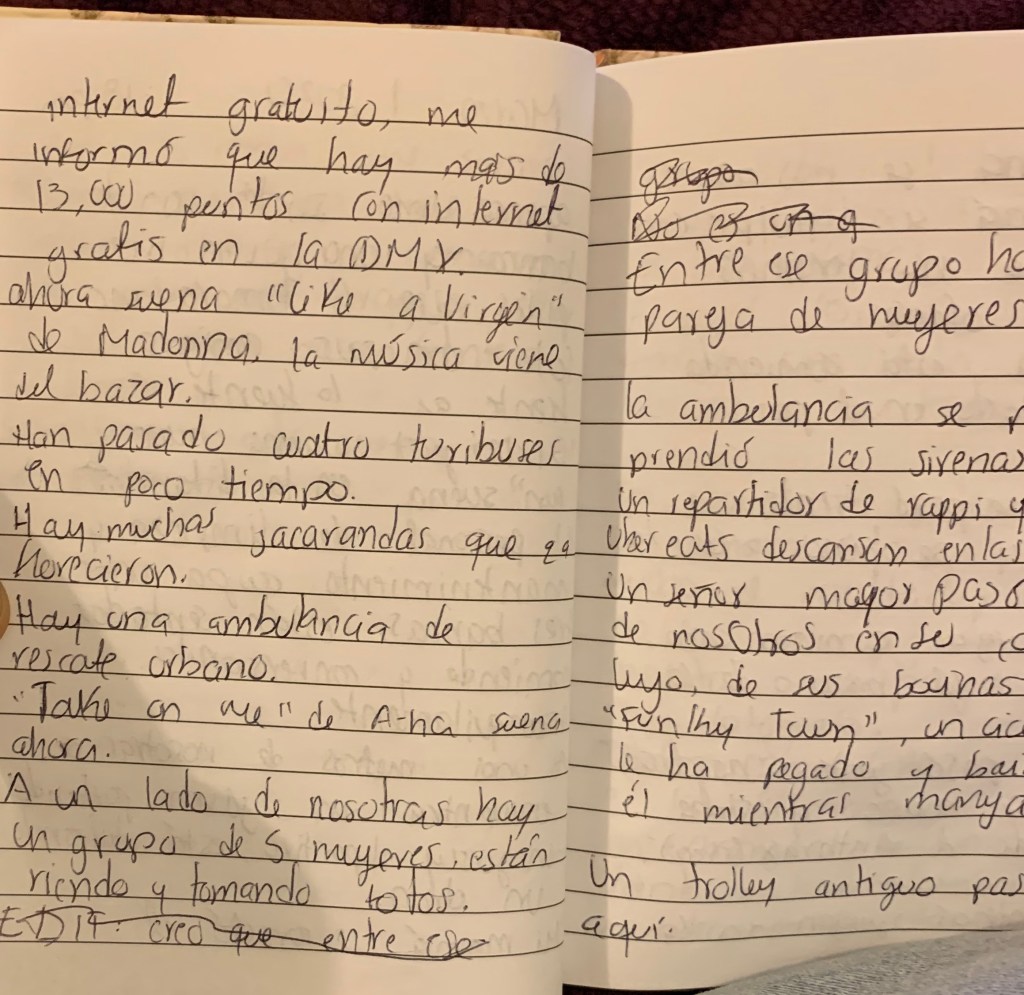 internet gratuito, me
informó que hay mas de
13,000 puntos con internet
gratis en la CDMX.
ahora suena "Like a Virgen"
de Madonna. la música viene
del bazar.
Han parado cuatro turibuses
en poco tiempo.
Hay muchas jacarandas que ya
florecieron.
Hay una ambulancia de
rescate urbano.
"Take on me" de A-ha suena
ahora.
A un lado de nosotras hay
un grupo de 5 mujeres, están
riendo y tomando fotos.
EDIT: creo que entre ese
grupo
No es un g
Entre ese grupo ha
pareja de mujeres
la ambulancia se
prendió las sirenas
Un repartidor de rappi y
Uber eats descansan en las
Un señor mayor pasó
de nosotros en su co
lujo, de sus bocinas
Town", un cic
le ha pegado y bai
él mientras maneja
Un trolley antiguo pas
aquí.